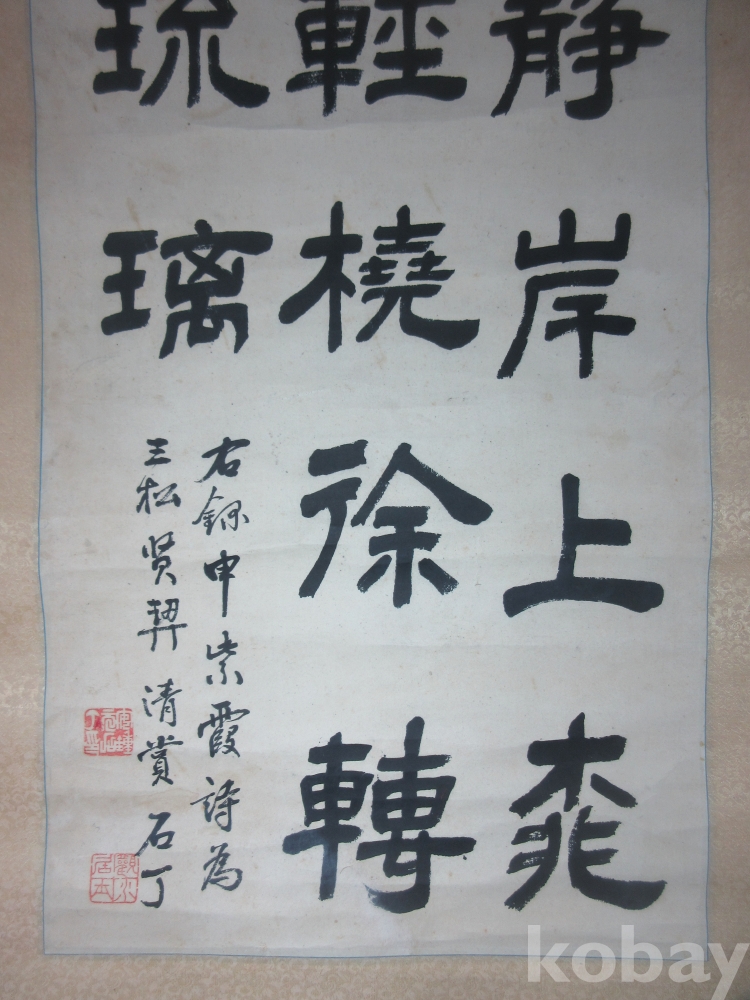 静岸上桃
輕橈徐轉
琉璃
右録申紫霞詩為
三松賢契清賞 石丁
kobay